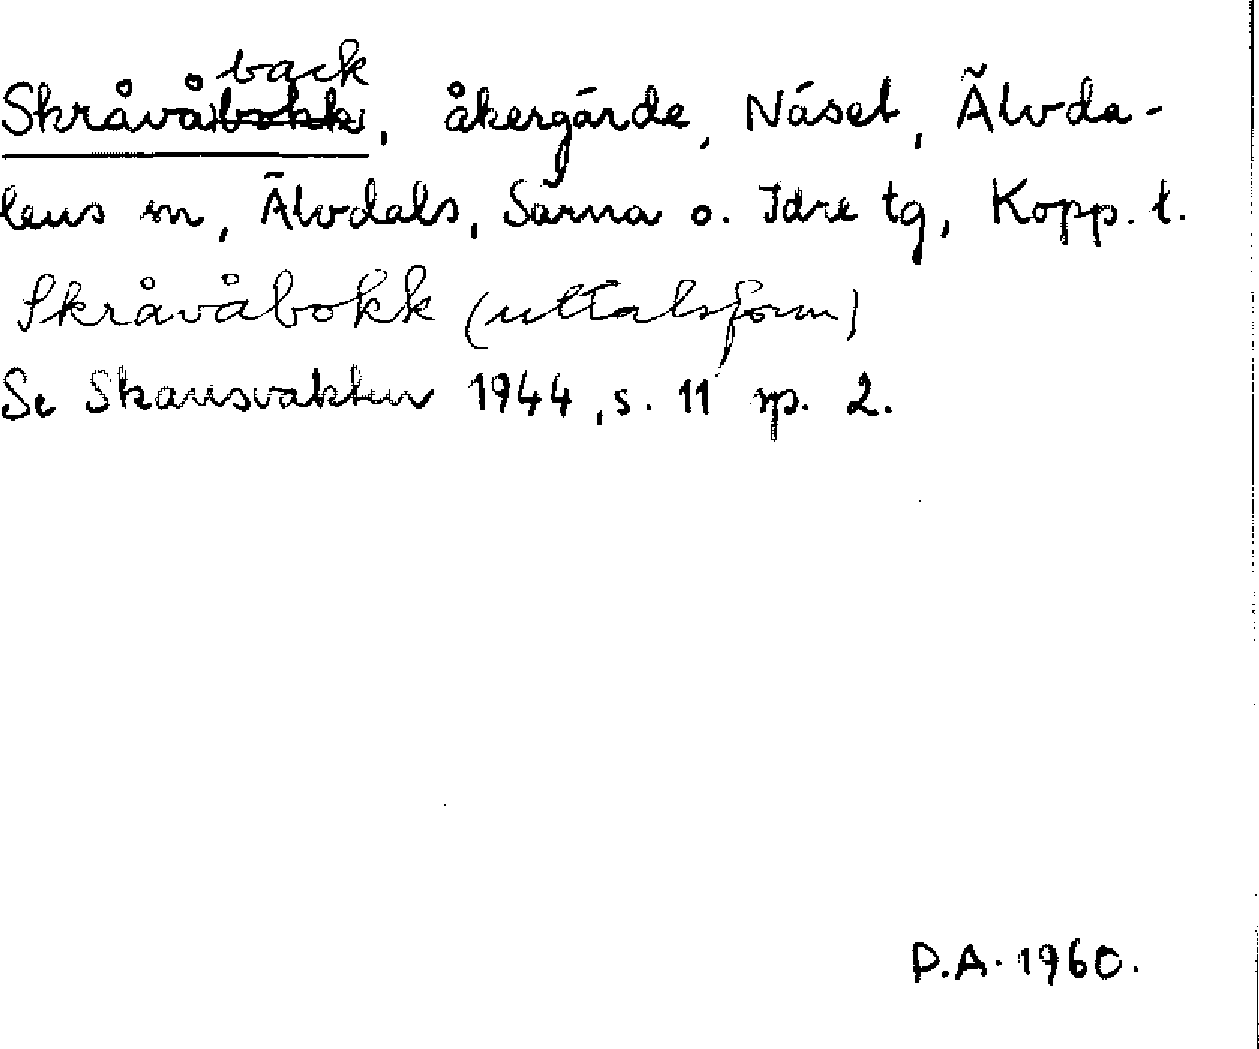 back
Skråvåbokk, åkergärde, Näset, Älvda-
lens sn, Älvdals, Särna o. Idre tg, Kopp. l.
Skråvåbokk (uttalsform)
Se Skansvakten 1944, s. 11 sp. 2.
D.A. 1960.